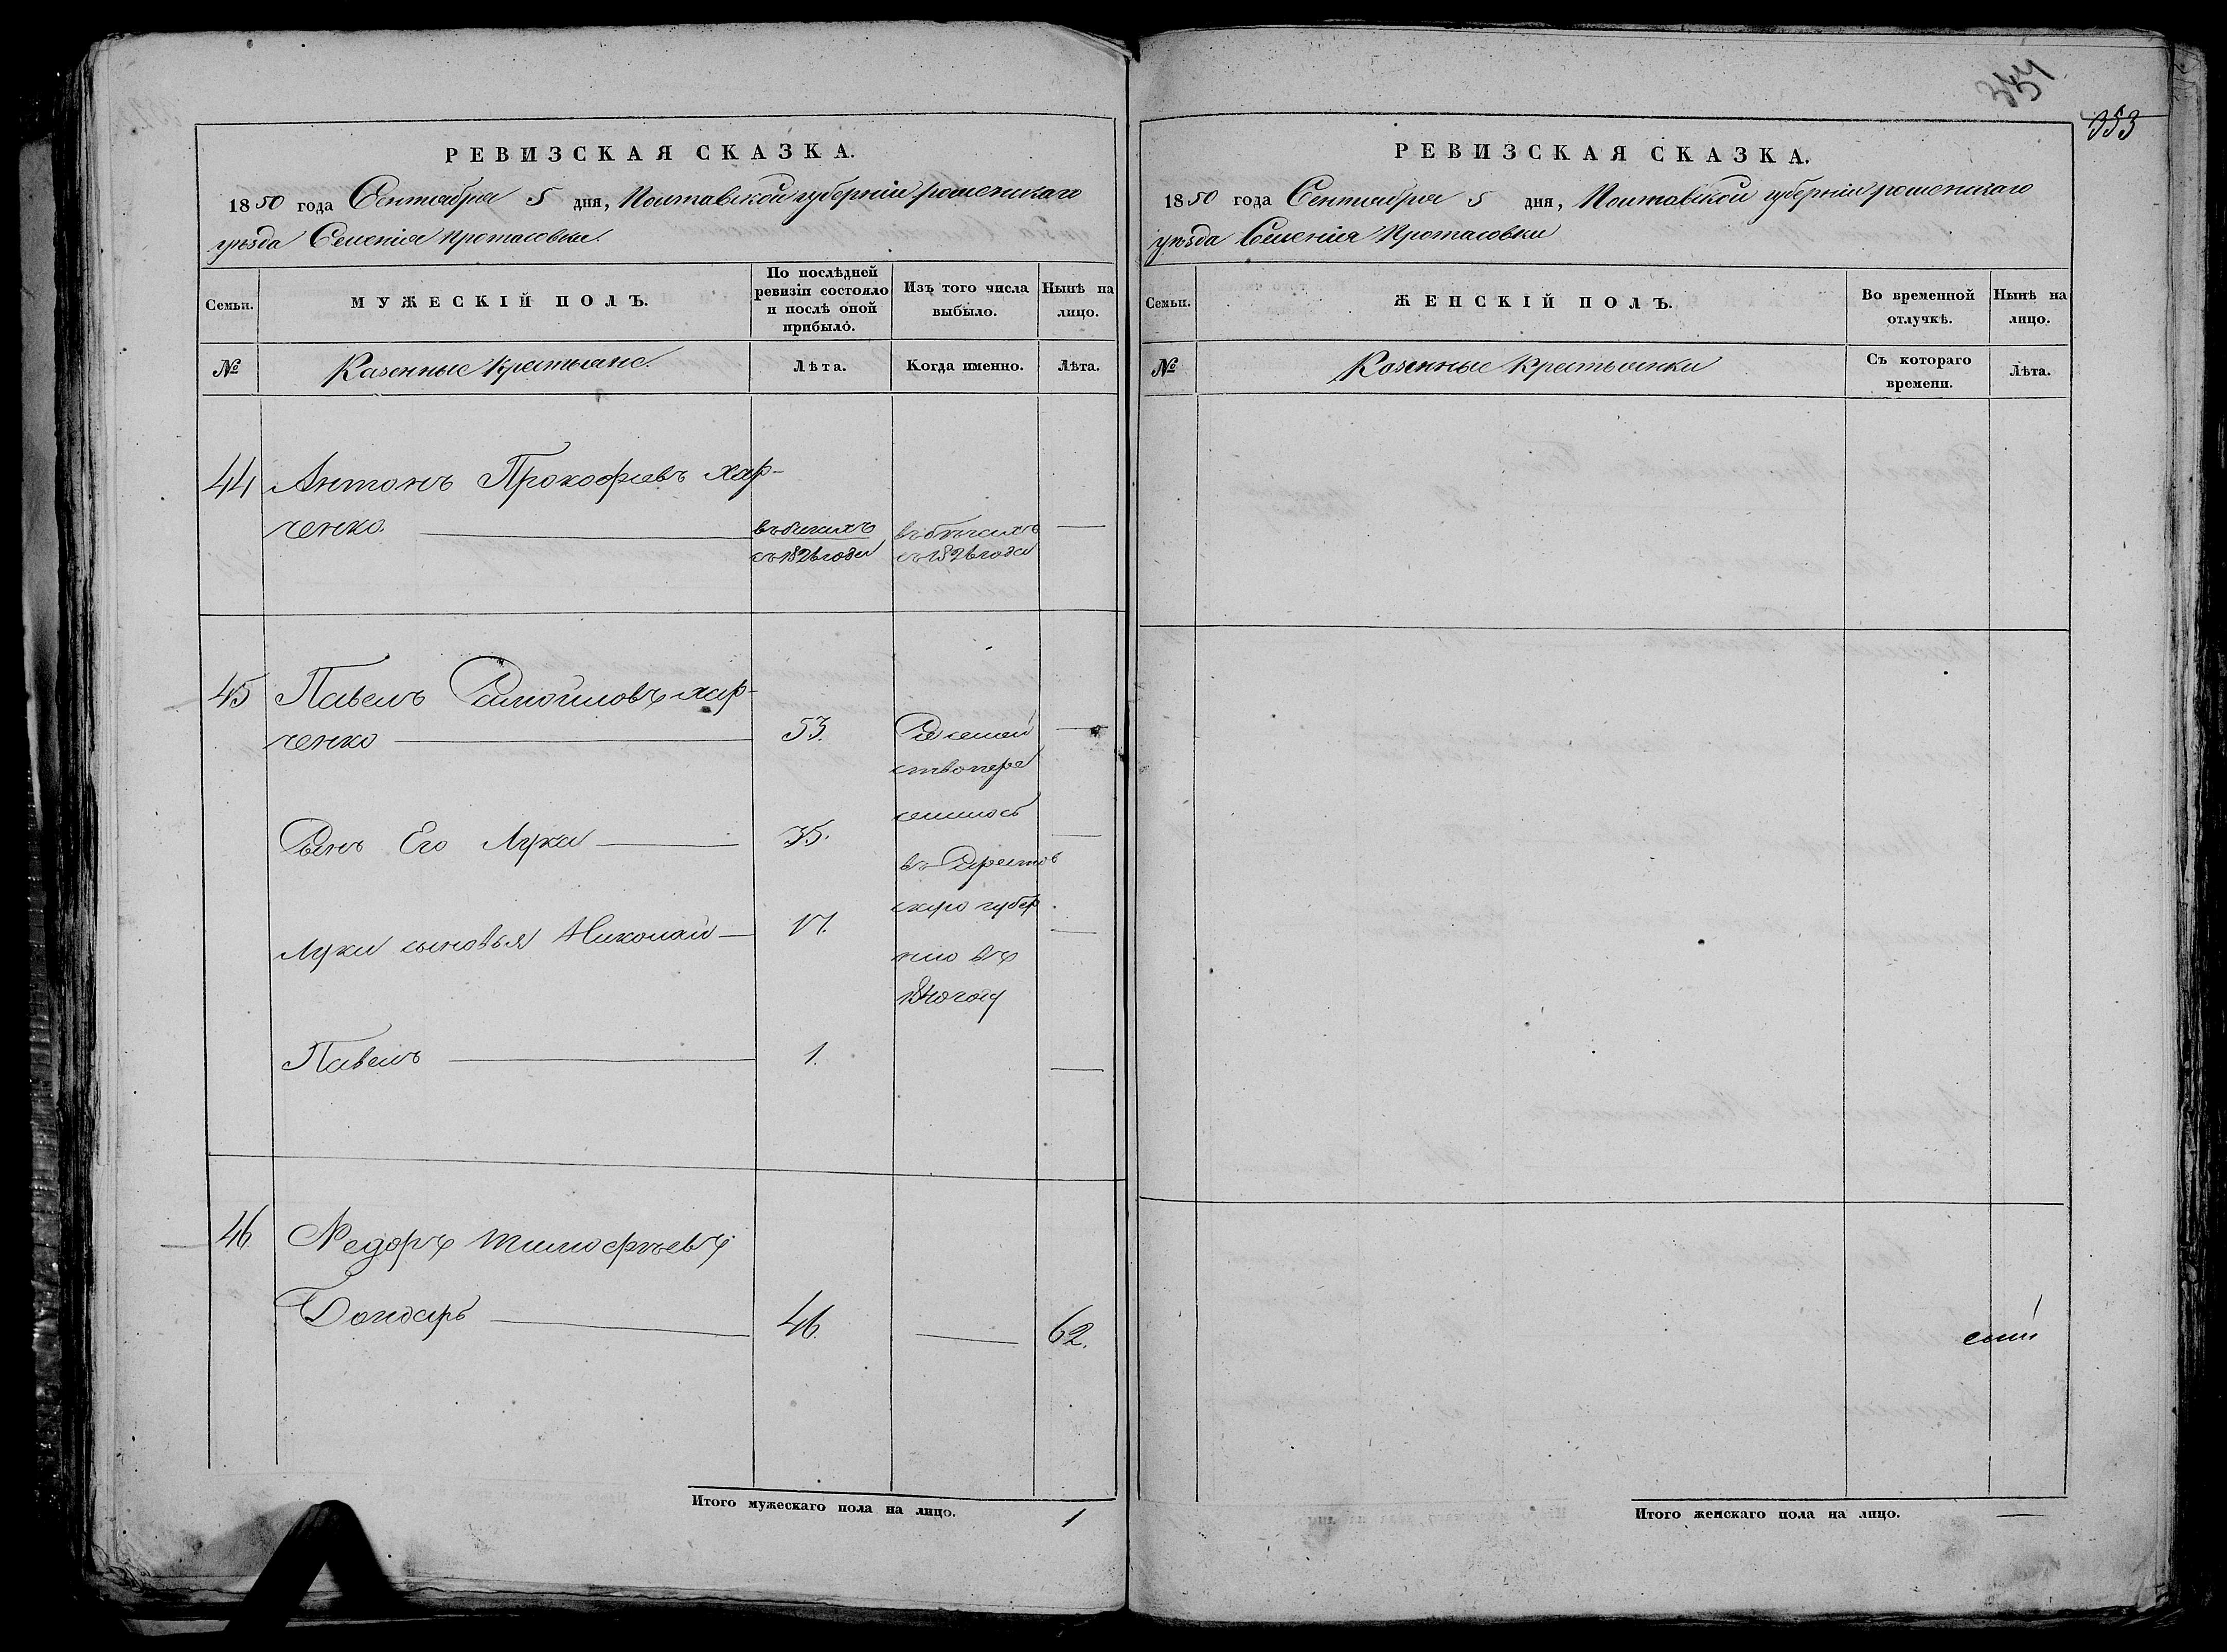 РЕВИЗСКАЯ СКАЗКА.
1850 года Сентября 5 дня, Полтавской губерніи роменскаго
уѣзда Селенія Протасовки.
Семьи.
МУЖЕСКІЙ ПОЛЪ.
По послѣдней
ревизіи состояло
и послѣ оной
прибыло.
Изъ того числа
выбыло.
Нынѣ на
лицо.
№
Казенные крестьяне.
Лѣта.
Когда именно.
Лѣта.
44 Антонъ Прокофьевъ Хар-
ченко.
въ бегахъ
съ 1826 года
въ бѣгахъ
съ 1826 года
45 Павелъ Самойловъ хар-
ченко 53.
Сынъ Его Лука 35.
Луки сыновья Николай 17.
Павелъ 1.
Съ семей
ствопере
селилось
въ Сарато
скую губер
нію въ
1840 году
46 Федоръ тимофѣевъ
Бондарь 46. 62.
Итого мужескаго пола на лицо. 1
353
РЕВИЗСКАЯ СКАЗКА.
1850 года Сентября 5 дня, Полтавской губерніи роменскаго
уѣзда Селенія Протасовки
Семьи.
ЖЕНСКІЙ ПОЛЪ.
Во временной
отлучкѣ.
Нынѣ на
лицо.
№
Казенные Крестьянки
Съ котораго
времени.
Лѣта.
Итого женскаго пола на лицо.